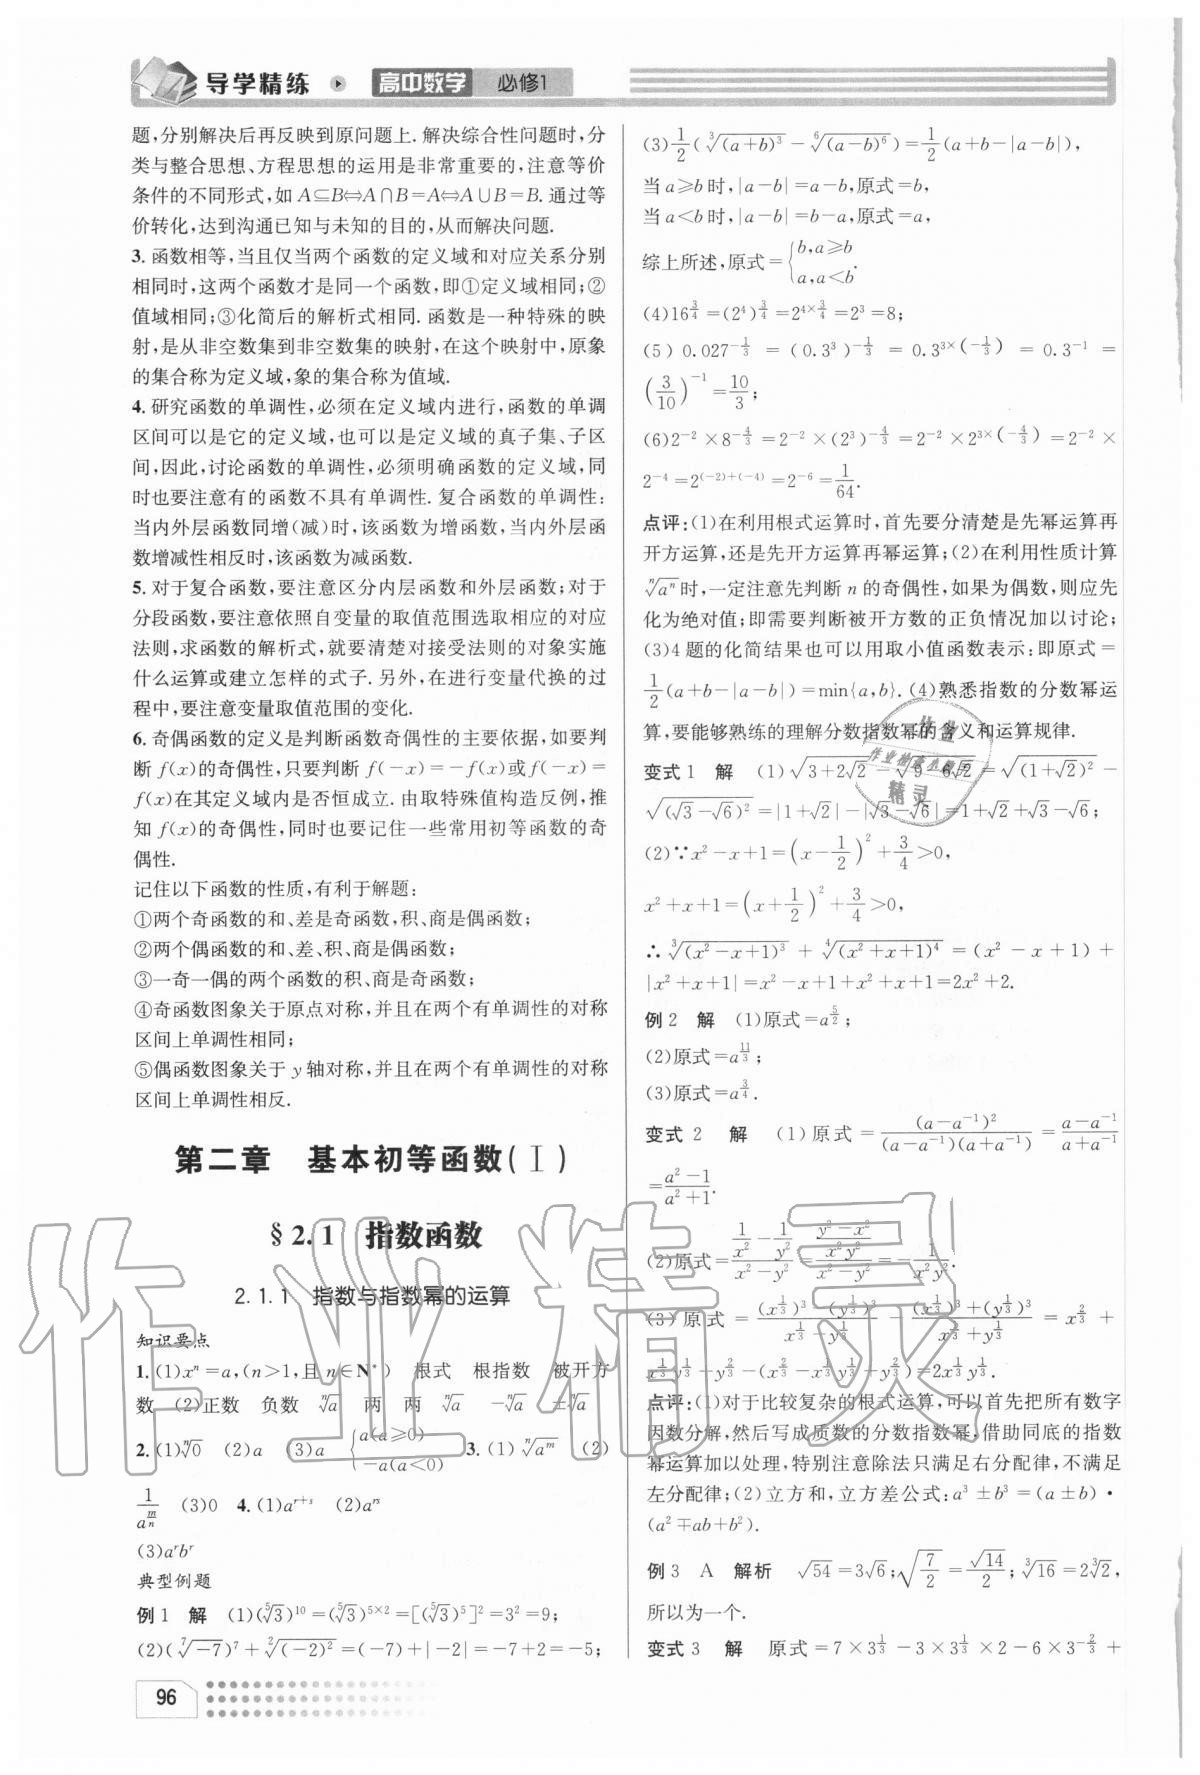 导学精练 高中数学 必修1
题,分别解决后再反映到原问题上. 解决综合性问题时,分
类与整合思想、方程思想的运用是非常重要的,注意等价
条件的不同形式,如 A⊆B⇔A∩B=A⇔A∪B=B. 通过等
价转化,达到沟通已知与未知的目的,从而解决问题.
3. 函数相等,当且仅当两个函数的定义域和对应关系分别
相同时,这两个函数才是同一个函数,即①定义域相同;②
值域相同;③化简后的解析式相同. 函数是一种特殊的映
射,是从非空数集到非空数集的映射,在这个映射中,原象
的集合称为定义域,象的集合称为值域.
4. 研究函数的单调性,必须在定义域内进行,函数的单调
区间可以是它的定义域,也可以是定义域的真子集、子区
间,因此,讨论函数的单调性,必须明确函数的定义域,同
时也要注意有的函数不具有单调性. 复合函数的单调性:
当内外层函数同增(减)时,该函数为增函数,当内外层函
数增减性相反时,该函数为减函数.
5. 对于复合函数,要注意区分内层函数和外层函数;对于
分段函数,要注意依照自变量的取值范围选取相应的对应
法则,求函数的解析式,就要清楚对接受法则的对象实施
什么运算或建立怎样的式子. 另外,在进行变量代换的过
程中,要注意变量取值范围的变化.
6. 奇偶函数的定义是判断函数奇偶性的主要依据,如要判
断 f(x)的奇偶性,只要判断 f(-x)=-f(x)或f(-x)=
f(x)在其定义域内是否恒成立. 由取特殊值构造反例,推
知 f(x)的奇偶性,同时也要记住一些常用初等函数的奇
偶性.
记住以下函数的性质,有利于解题:
①两个奇函数的和、差是奇函数,积、商是偶函数;
②两个偶函数的和、差、积、商是偶函数;
③一奇一偶的两个函数的积、商是奇函数;
④奇函数图象关于原点对称,并且在两个有单调性的对称
区间上单调性相同;
⑤偶函数图象关于 y 轴对称,并且在两个有单调性的对称
区间上单调性相反.
第二章 基本初等函数(Ⅰ)
§2.1 指数函数
2.1.1 指数与指数幂的运算
知识要点
1. (1)xⁿ=a,(n>1,且 n∈N*) 根式 根指数 被开方
数 (2)正数 负数 ⁿ√a 两 两 -ⁿ√a ±ⁿ√a
2. (1)ⁿ√0 (2)a (3)a {a(a≥0) -a(a<0) 3. (1)ⁿ√a^m (2)
1/a^(m/n) (3)0 4. (1)a^(r+s) (2)a^(rs)
(3)a^r b^r
典型例题
例1 解 (1)(⁵√3)^10=(⁵√3)^(5×2)=[(⁵√3)^5]^2=3^2=9;
(2)(⁷√-7)^7+²√(-2)^2=(-7)+|-2|=-7+2=-5;
96
(3)1/2(³√(a+b)^3-⁶√(a-b)^6)=1/2(a+b-|a-b|),
当 a≥b 时,|a-b|=a-b,原式=b,
当 a<b 时,|a-b|=b-a,原式=a,
综上所述,原式={b,a≥b a,a<b.
(4)16^(3/4)=(2^4)^(3/4)=2^(4×3/4)=2^3=8;
(5)0.027^(-1/3)=(0.3^3)^(-1/3)=0.3^(3×(-1/3))=0.3^(-1)=
(3/10)^(-1)=10/3;
(6)2^(-2)×8^(-4/3)=2^(-2)×(2^3)^(-4/3)=2^(-2)×2^(3×(-4/3))=2^(-2)×
2^(-4)=2^((-2)+(-4))=2^(-6)=1/64.
点评:(1)在利用根式运算时,首先要分清楚是先幂运算再
开方运算,还是先开方运算再幂运算;(2)在利用性质计算
ⁿ√aⁿ时,一定注意先判断 n 的奇偶性,如果为偶数,则应先
化为绝对值;即需要判断被开方数的正负情况加以讨论;
(3)4 题的化简结果也可以用取小值函数表示:即原式=
1/2(a+b-|a-b|)=min{a,b}. (4)熟悉指数的分数幂运
算,要能够熟练的理解分数指数幂的含义和运算规律.
变式1 解 (1)√(3+2√2)-√(9-6√2)=√(1+√2)^2-
√(√3-√6)^2=|1+√2|-|√3-√6|=1+√2+√3-√6;
(2)∵x^2-x+1=(x-1/2)^2+3/4>0,
x^2+x+1=(x+1/2)^2+3/4>0,
∴³√(x^2-x+1)^3+⁴√(x^2+x+1)^4=(x^2-x+1)+
|x^2+x+1|=x^2-x+1+x^2+x+1=2x^2+2.
例2 解 (1)原式=a^(5/2);
(2)原式=a^(11/3);
(3)原式=a^(3/4).
变式2 解 (1)原式=(a-a^(-1))^2/(a-a^(-1))(a+a^(-1))=(a-a^(-1))/(a+a^(-1))
=(a^2-1)/(a^2+1).
(2)原式=(1/x^2-1/y^2)/(x^2-y^2)=((y^2-x^2)/(x^2y^2))/(x^2-y^2)=-1/(x^2y^2).
(3)原式=((x^(1/3))^3-(y^(1/3))^3)/(x^(1/3)-y^(1/3))-((x^(1/3))^3+(y^(1/3))^3)/(x^(1/3)+y^(1/3))=x^(2/3)+
x^(1/3)y^(1/3)+y^(2/3)-(x^(2/3)-x^(1/3)y^(1/3)+y^(2/3))=2x^(1/3)y^(1/3).
点评:(1)对于比较复杂的根式运算,可以首先把所有数字
因数分解,然后写成质数的分数指数幂,借助同底的指数
幂运算加以处理,特别注意除法只满足右分配律,不满足
左分配律;(2)立方和,立方差公式:a^3±b^3=(a±b)·
(a^2∓ab+b^2).
例3 A 解析 √54=3√6;√(7/2)=√14/2;³√16=2³√2,
所以为一个.
变式3 解 原式=7×3^(1/3)-3×3^(1/3)×2-6×3^(-2/3)+
作业精灵